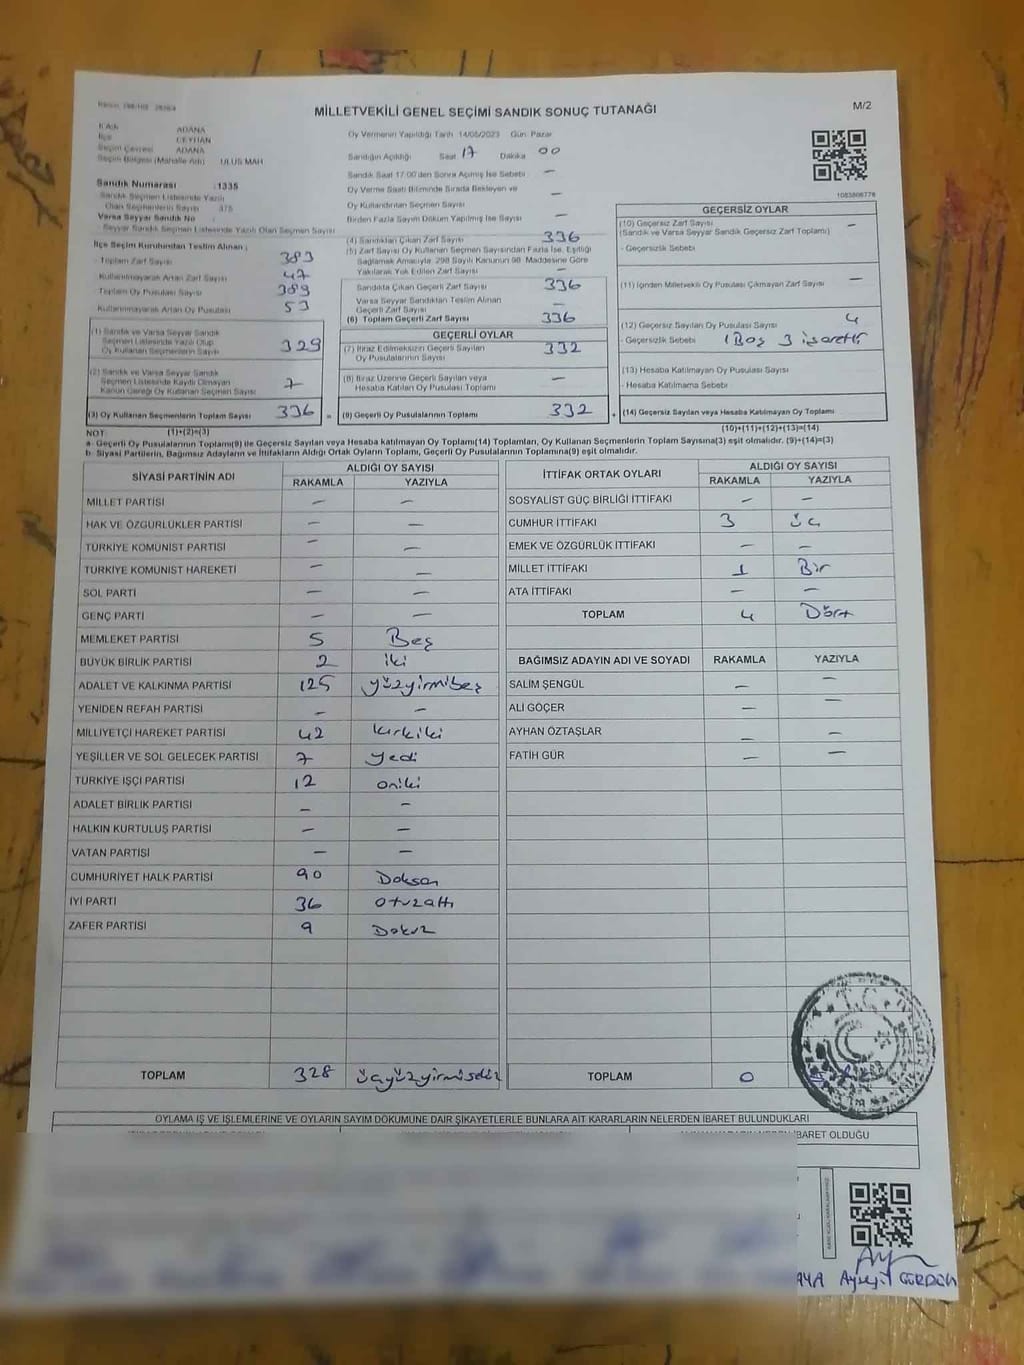 MİLLETVEKİLİ GENEL SEÇİMİ SANDIK SONUÇ TUTANAĞI
M/2
İl Adı ADANA
İlçe CEYHAN
Seçim Çevresi ADANA
Seçim Bölgesi (Mahalle Adı) ULUS MAH
Sandık Numarası :1335
Sandık Seçmen Listesinde Yazılı
Olan Seçmenlerin Sayısı : 375
Varsa Seyyar Sandık No
Seyyar Sandık Seçmen Listesinde Yazılı Olan Seçmen Sayısı
Oy Vermenin Yapıldığı Tarih 14/05/2023 Gün Pazar
Sandığın Açıldığı Saat 17 Dakika 00
Sandık Saat 17:00'den Sonra Açılmış İse Sebebi —
Oy Verme Saati Bitiminde Sırada Bekleyen ve
Oy Kullandırılan Seçmen Sayısı —
Birden Fazla Sayım Döküm Yapılmış İse Sayısı —
1083806776
İlçe Seçim Kurulundan Teslim Alınan ;
Toplam Zarf Sayısı 383
Kullanılmayarak Artan Zarf Sayısı 47
Toplam Oy Pusulası Sayısı 389
Kullanılmayarak Artan Oy Pusulası 53
(1) Sandık ve Varsa Seyyar Sandık
Seçmen Listesinde Yazılı Olup
Oy Kullanan Seçmenlerin Sayısı 329
(2) Sandık ve Varsa Seyyar Sandık
Seçmen Listesinde Kayıtlı Olmayan
Kanun Gereği Oy Kullanan Seçmen Sayısı 7
(3) Oy Kullanan Seçmenlerin Toplam Sayısı 336
(1)+(2)=(3)
(4) Sandıktan Çıkan Zarf Sayısı 336
(5) Zarf Sayısı Oy Kullanan Seçmen Sayısından Fazla İse, Eşitliği
Sağlamak Amacıyla 298 Sayılı Kanunun 98. Maddesine Göre
Yakılarak Yok Edilen Zarf Sayısı —
Sandıkta Çıkan Geçerli Zarf Sayısı 336
Varsa Seyyar Sandıktan Teslim Alınan
Geçerli Zarf Sayısı —
(6) Toplam Geçerli Zarf Sayısı 336
GEÇERLİ OYLAR
(7) İtiraz Edilmeksizin Geçerli Sayılan
Oy Pusulalarının Sayısı 332
(8) İtiraz Üzerine Geçerli Sayılan veya
Hesaba Katılan Oy Pusulası Toplamı —
= (9) Geçerli Oy Pusulalarının Toplamı 332
GEÇERSİZ OYLAR
(10) Geçersiz Zarf Sayısı
(Sandık ve Varsa Seyyar Sandık Geçersiz Zarf Toplamı) —
- Geçersizlik Sebebi
(11) İçinden Milletvekili Oy Pusulası Çıkmayan Zarf Sayısı —
(12) Geçersiz Sayılan Oy Pusulası Sayısı 4
- Geçersizlik Sebebi 1 Boş 3 işaretli
(13) Hesaba Katılmayan Oy Pusulası Sayısı
- Hesaba Katılmama Sebebi
+ (14) Geçersiz Sayılan veya Hesaba Katılmayan Oy Toplamı
(10)+(11)+(12)+(13)=(14)
NOT:
a- Geçerli Oy Pusulalarının Toplamı(9) ile Geçersiz Sayılan veya Hesaba katılmayan Oy Toplamı(14) Toplamları, Oy Kullanan Seçmenlerin Toplam Sayısına(3) eşit olmalıdır. (9)+(14)=(3)
b- Siyasi Partilerin, Bağımsız Adayların ve İttifakların Aldığı Ortak Oyların Toplamı, Geçerli Oy Pusulalarının Toplamına(9) eşit olmalıdır.
SİYASİ PARTİNİN ADI ALDIĞI OY SAYISI
RAKAMLA YAZIYLA
MİLLET PARTİSİ — —
HAK VE ÖZGÜRLÜKLER PARTİSİ — —
TÜRKİYE KOMÜNİST PARTİSİ — —
TÜRKİYE KOMÜNİST HAREKETİ — —
SOL PARTİ — —
GENÇ PARTİ — —
MEMLEKET PARTİSİ 5 Beş
BÜYÜK BİRLİK PARTİSİ 2 iki
ADALET VE KALKINMA PARTİSİ 125 yüzyirmibeş
YENİDEN REFAH PARTİSİ — —
MİLLİYETÇİ HAREKET PARTİSİ 42 kırkiki
YEŞİLLER VE SOL GELECEK PARTİSİ 7 yedi
TÜRKİYE İŞÇİ PARTİSİ 12 oniki
ADALET BİRLİK PARTİSİ — —
HALKIN KURTULUŞ PARTİSİ — —
VATAN PARTİSİ — —
CUMHURİYET HALK PARTİSİ 90 Doksan
İYİ PARTİ 36 otuzaltı
ZAFER PARTİSİ 9 Dokuz
TOPLAM 328 üçyüzyirmisekiz
İTTİFAK ORTAK OYLARI ALDIĞI OY SAYISI
RAKAMLA YAZIYLA
SOSYALİST GÜÇ BİRLİĞİ İTTİFAKI — —
CUMHUR İTTİFAKI 3 üç
EMEK VE ÖZGÜRLÜK İTTİFAKI — —
MİLLET İTTİFAKI 1 Bir
ATA İTTİFAKI — —
TOPLAM 4 Dört
BAĞIMSIZ ADAYIN ADI VE SOYADI RAKAMLA YAZIYLA
SALİM ŞENGÜL — —
ALİ GÖÇER — —
AYHAN ÖZTAŞLAR — —
FATİH GÜR — —
TOPLAM 0
T.C.
OYLAMA İŞ VE İŞLEMLERİNE VE OYLARIN SAYIM DÖKÜMÜNE DAİR ŞİKAYETLERLE BUNLARA AİT KARARLARIN NELERDEN İBARET BULUNDUKLARI
İBARET OLDUĞU